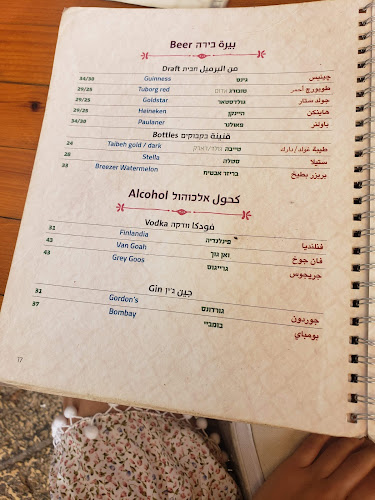 Beer בירה بيرة
Draft מחבית من البرميل
33/30 Guinness גינס جينيس
29/25 Tuborg red טובורג אדום طوبورج أحمر
29/25 Goldstar גולדסטאר جولد ستار
29/25 Heineken היינקן هاينكن
34/30 Paulaner פאולנר باولنر
Bottles בקבוקים قنينة
24 Taibeh gold / dark טייבה גולד/דארק طيبة غولد/دارك
28 Stella סטלה ستيلا
28 Breezer Watermelon בריזר אבטיח بريزر بطيخ
Alcohol אלכוהול كحول
Vodka וודקה فودكا
31 Finlandia פינלנדיה فنلنديا
43 Van Goah ואן גוך فان جوخ
43 Grey Goos גרייגוס جريجوس
Gin ג'ין جين
31 Gordon's גורדונס جوردون
37 Bombay בומביי بومباي
17